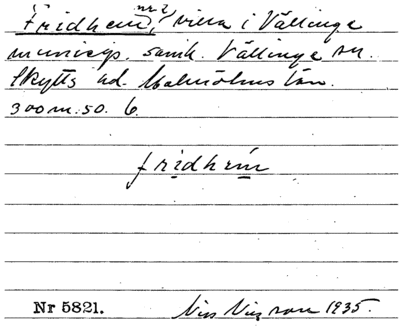 Fridhem, nr 2, villa i Vällinge
municip. samh. Vällinge sn.
Skytts hd. Malmöhus län.
300 m. SO. 6.
fridhem
Nr 5821. Nils Nilsson 1935.